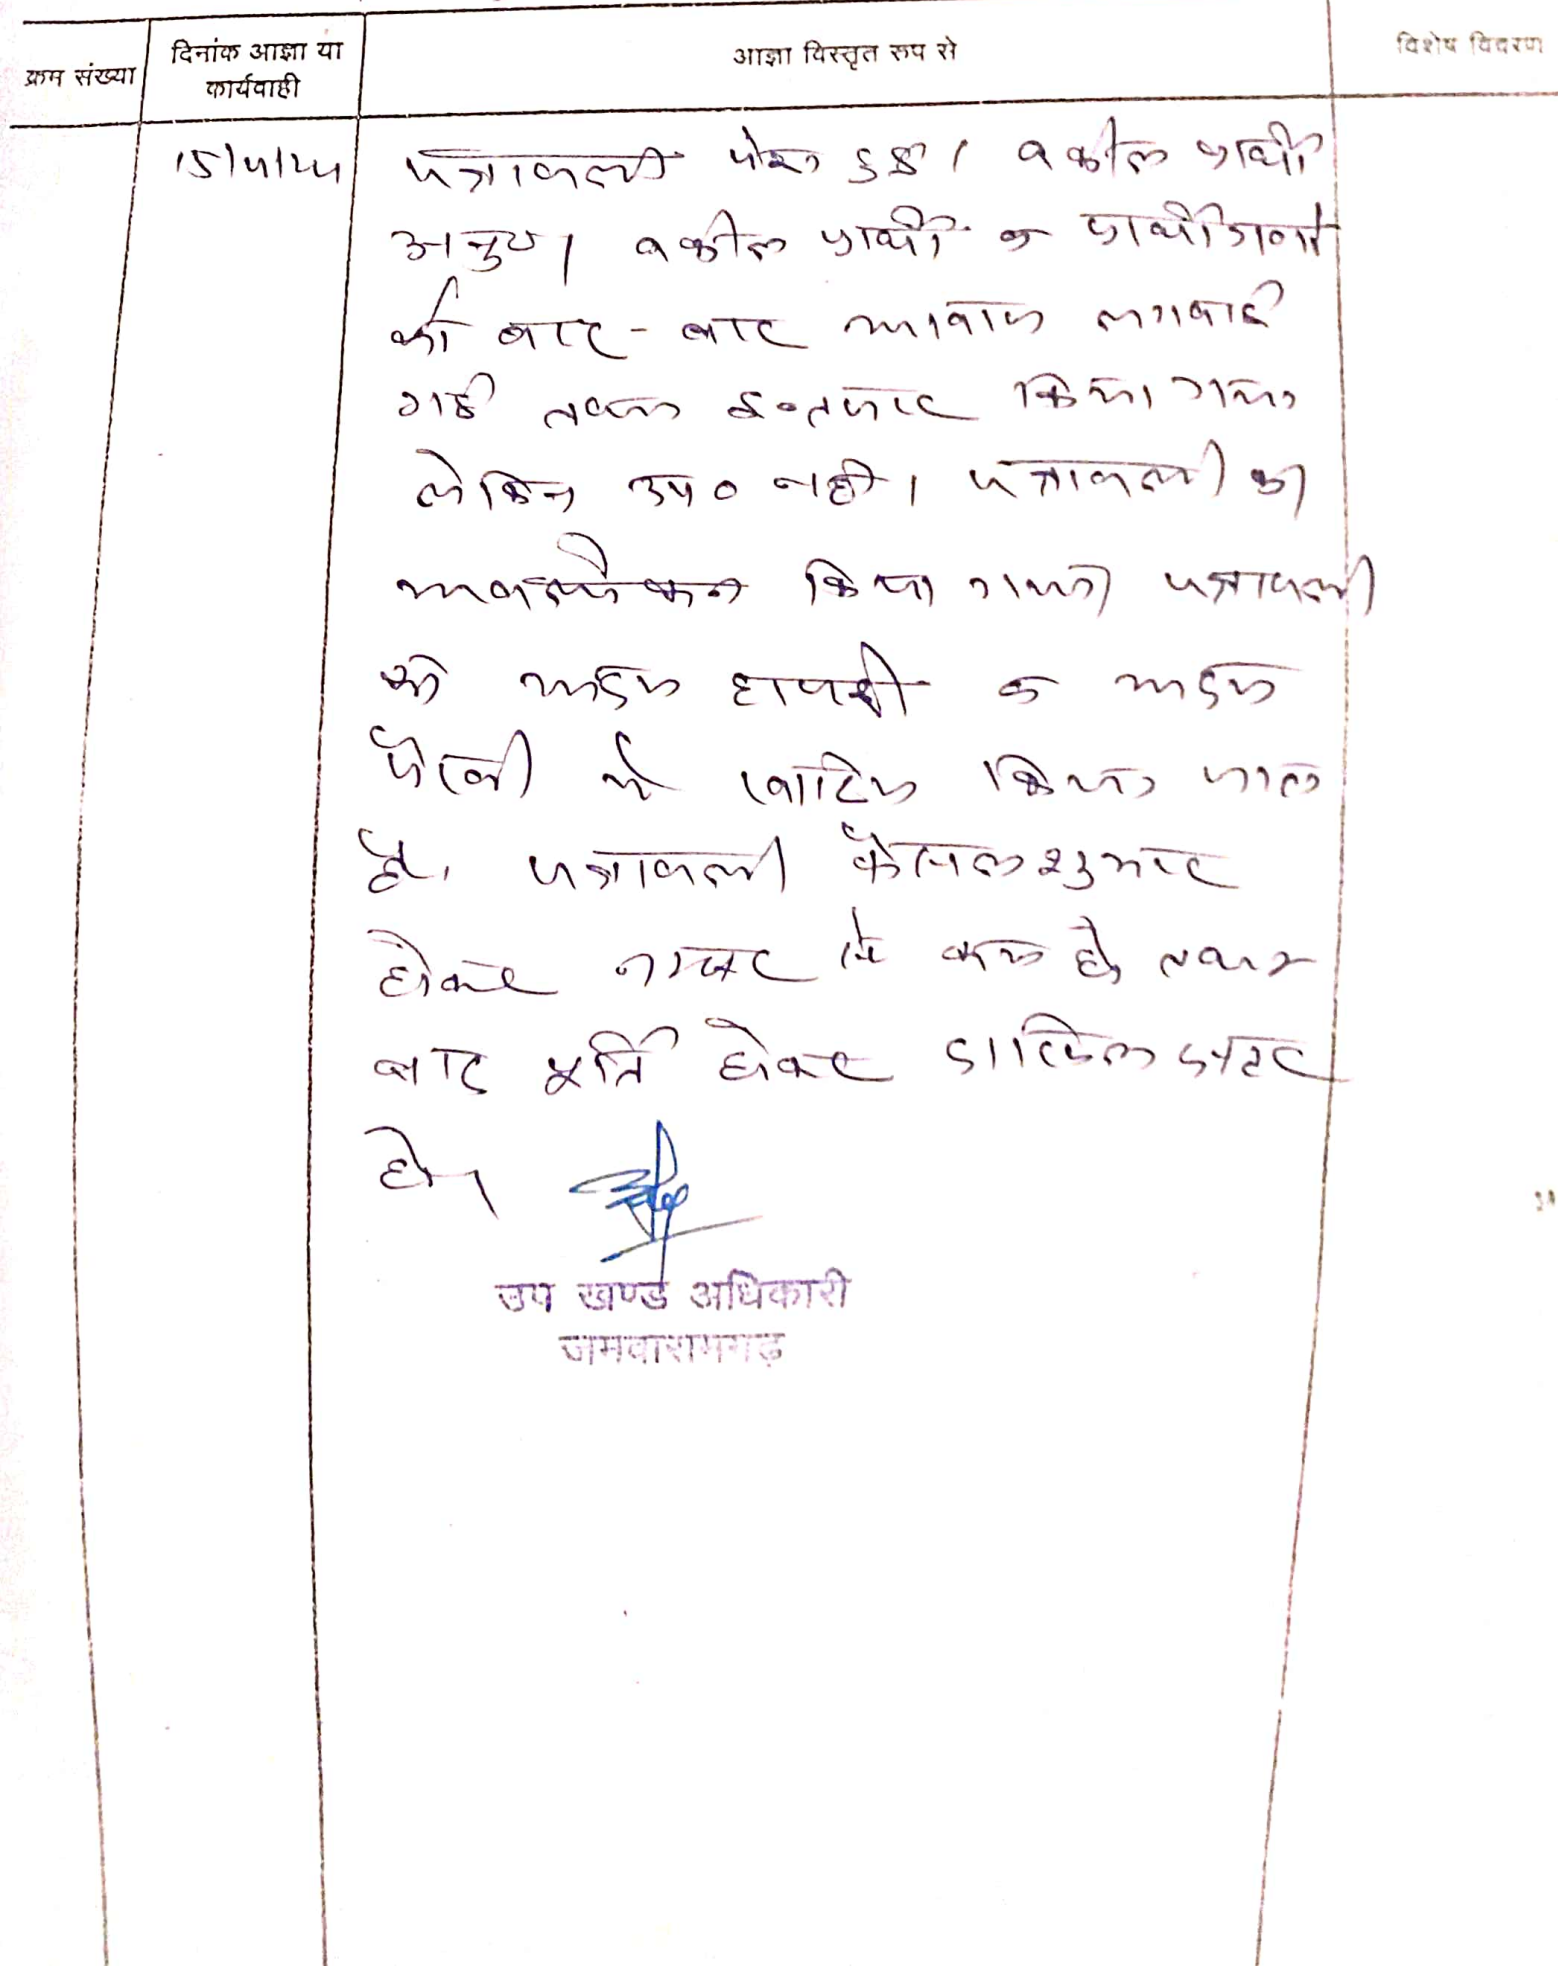 क्रम संख्या
दिनांक आज्ञा या
कार्यवाही
आज्ञा विस्तृत रूप से
विशेष विवरण
पत्रावली पेश हुई। वकील प्रार्थी
अनुप। वकील प्रार्थी व प्रार्थीगण
को बार-बार आवाज लगवाई
गई तथा इन्तजार किया गया
लेकिन उप० नही। पत्रावली का
अवलोकन किया गया पत्रावली
को अदम हाजरी व अदम
पैरवी में खारिज किया जाता
है। पत्रावली फैसल शुमार
होकर नम्बर से कम हो तथा
बाद पूर्ति होकर दाखिल दफ्तर
हो।
उप खण्ड अधिकारी
जमवारामगढ़